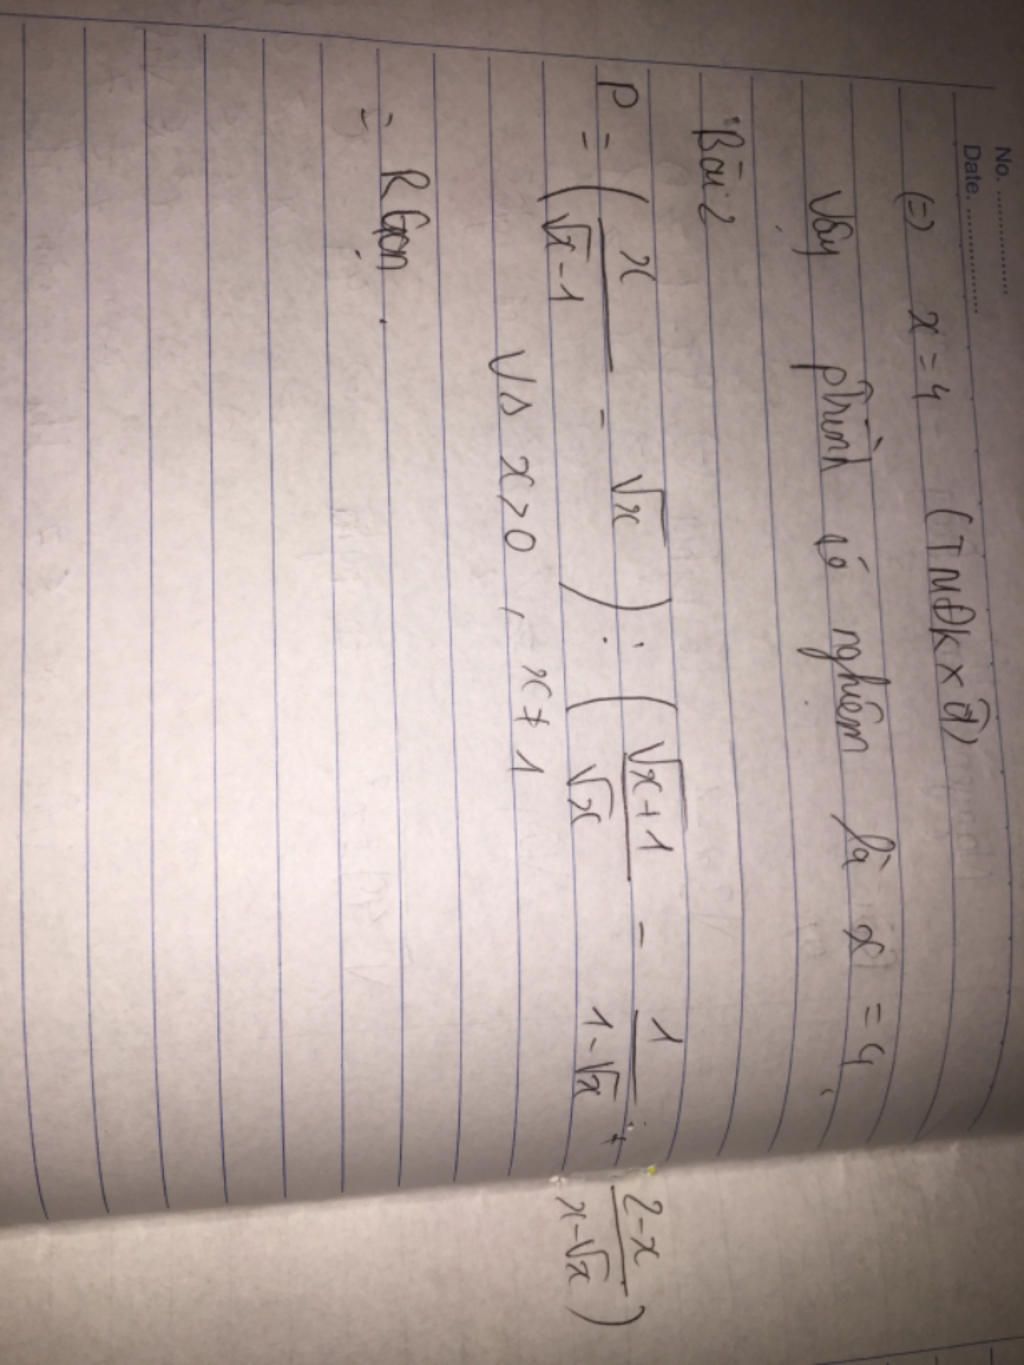 No. ................
Date. ................
(=) x = 4 (TMĐKXĐ)
Vậy phình có nghiệm là x = 4
Bài 2
P = ( x/(√x-1) - √x ) : ( √x+1/√x - 1/(1-√x) + (2-x)/(x-√x) )
Vs x>0, x≠1
= RGọn.